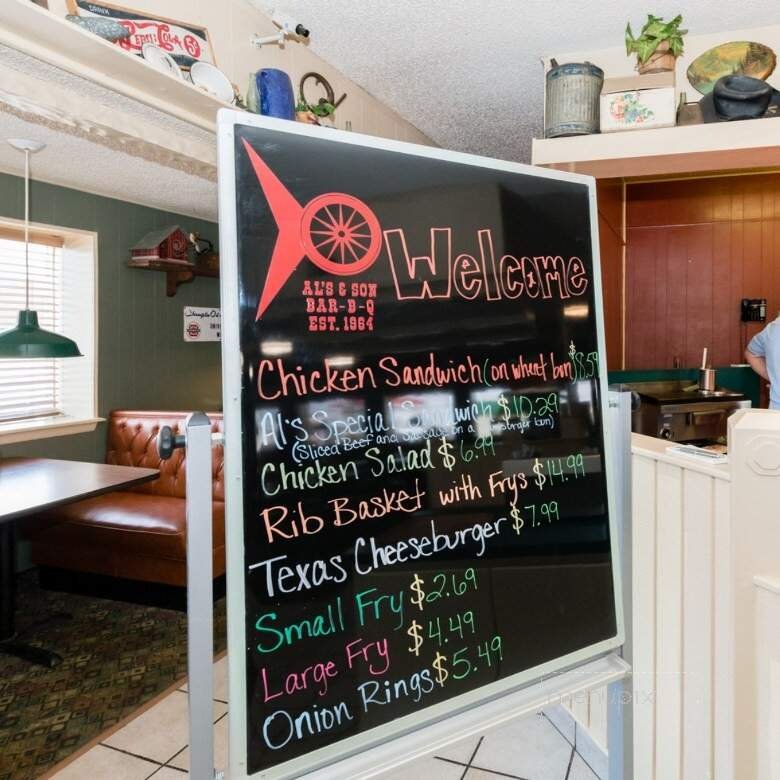 DRINK
PEPSI:COLA 5¢
Welcome
AL'S & SON
BAR-B-Q
EST. 1964
Chicken Sandwich (on wheat bun) $8.59
Al's Special Sandwich $10.29
(Sliced Beef and Sausage on a Hamburger bun)
Chicken Salad $6.99
Rib Basket with Frys $14.99
Texas Cheeseburger $7.99
Small Fry $2.69
Large Fry $4.49
Onion Rings $5.49
menupix